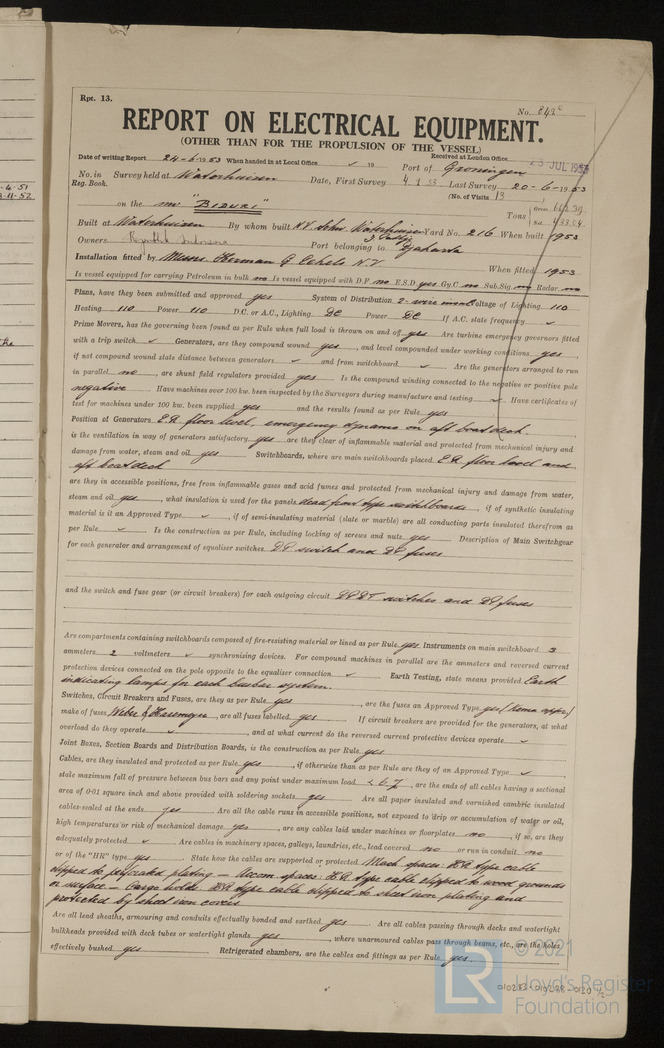 Rpt. 13.
No. 842c
REPORT ON ELECTRICAL EQUIPMENT.
(OTHER THAN FOR THE PROPULSION OF THE VESSEL)
Date of writing Report 24-6-1953 When handed in at Local Office 19 Received at London Office 23 JUL 1953
No. in Reg. Book. Survey held at Waterhuizen Port of Groningen
Date, First Survey 4. 53 Last Survey 20-6-1953
(No. of Visits 13 )
on the mv "BIDURI" Tons Gross Net 433.04
Built at Waterhuizen By whom built NV. Schw. Waterhuizen J. Pattje Yard No. 216 When built 1953
Owners Republik Indonesia Port belonging to Djakarta
Installation fitted by Messrs. Herman G Eekels N.V. When fitted 1953
Is vessel equipped for carrying Petroleum in bulk no Is vessel equipped with D.F. no E.S.D yes Gy.C no Sub.Sig. no Radar no
Plans, have they been submitted and approved yes System of Distribution 2-wire insul. Voltage of Lighting 110
Heating 110 Power 110 D.C. or A.C., Lighting DC Power DC If A.C. state frequency
Prime Movers, has the governing been found as per Rule when full load is thrown on and off yes Are turbine emergency governors fitted
with a trip switch Generators, are they compound wound yes, and level compounded under working conditions yes,
if not compound wound state distance between generators and from switchboard Are the generators arranged to run
in parallel no, are shunt field regulators provided yes Is the compound winding connected to the negative or positive pole
negative Have machines over 100 kw. been inspected by the Surveyors during manufacture and testing Have certificates of
test for machines under 100 kw. been supplied yes and the results found as per Rule yes
Position of Generators E.R. floor level, emergency dynamo on aft boatdeck.
is the ventilation in way of generators satisfactory yes are they clear of inflammable material and protected from mechanical injury and
damage from water, steam and oil yes Switchboards, where are main switchboards placed E.R. floor level and
aft boatdeck
are they in accessible positions, free from inflammable gases and acid fumes and protected from mechanical injury and damage from water,
steam and oil yes, what insulation is used for the panels dead front type switchboards, if of synthetic insulating
material is it an Approved Type, if of semi-insulating material (slate or marble) are all conducting parts insulated therefrom as
per Rule Is the construction as per Rule, including locking of screws and nuts yes Description of Main Switchgear
for each generator and arrangement of equaliser switches DP switch and DP fuses
and the switch and fuse gear (or circuit breakers) for each outgoing circuit DPDT switches and DP fuses
Are compartments containing switchboards composed of fire-resisting material or lined as per Rule yes Instruments on main switchboard 3
ammeters 2 voltmeters synchronising devices. For compound machines in parallel are the ammeters and reversed current
protection devices connected on the pole opposite to the equaliser connection Earth Testing, state means provided Earth
indicating lamps for each busbar system.
Switches, Circuit Breakers and Fuses, are they as per Rule yes, are the fuses an Approved Type yes (Kema appr.)
make of fuses Weber & Hazemeyer, are all fuses labelled yes If circuit breakers are provided for the generators, at what
overload do they operate, and at what current do the reversed current protective devices operate
Joint Boxes, Section Boards and Distribution Boards, is the construction as per Rule yes
Cables, are they insulated and protected as per Rule yes, if otherwise than as per Rule are they of an Approved Type,
state maximum fall of pressure between bus bars and any point under maximum load < 6 V, are the ends of all cables having a sectional
area of 0·01 square inch and above provided with soldering sockets yes Are all paper insulated and varnished cambric insulated
cables sealed at the ends yes Are all the cable runs in accessible positions, not exposed to drip or accumulation of water or oil,
high temperatures or risk of mechanical damage yes, are any cables laid under machines or floorplates no, if so, are they
adequately protected Are cables in machinery spaces, galleys, laundries, etc., lead covered no or run in conduit no
or of the "HR" type yes. State how the cables are supported or protected Mach. spaces: H.R. type cable
clipped to perforated plating - Accom. spaces: H.R. type cable clipped to wood grounds
or surface - Cargo holds: H.R. type cable clipped to sheet iron plating and
protected by sheet iron covers
Are all lead sheaths, armouring and conduits effectually bonded and earthed yes Are all cables passing through decks and watertight
bulkheads provided with deck tubes or watertight glands yes, where unarmoured cables pass through beams, etc., are the holes
effectively bushed yes Refrigerated chambers, are the cables and fittings as per Rule yes.
© 2021
Lloyd's Register
Foundation
LR
010283-010288-0120 1/2